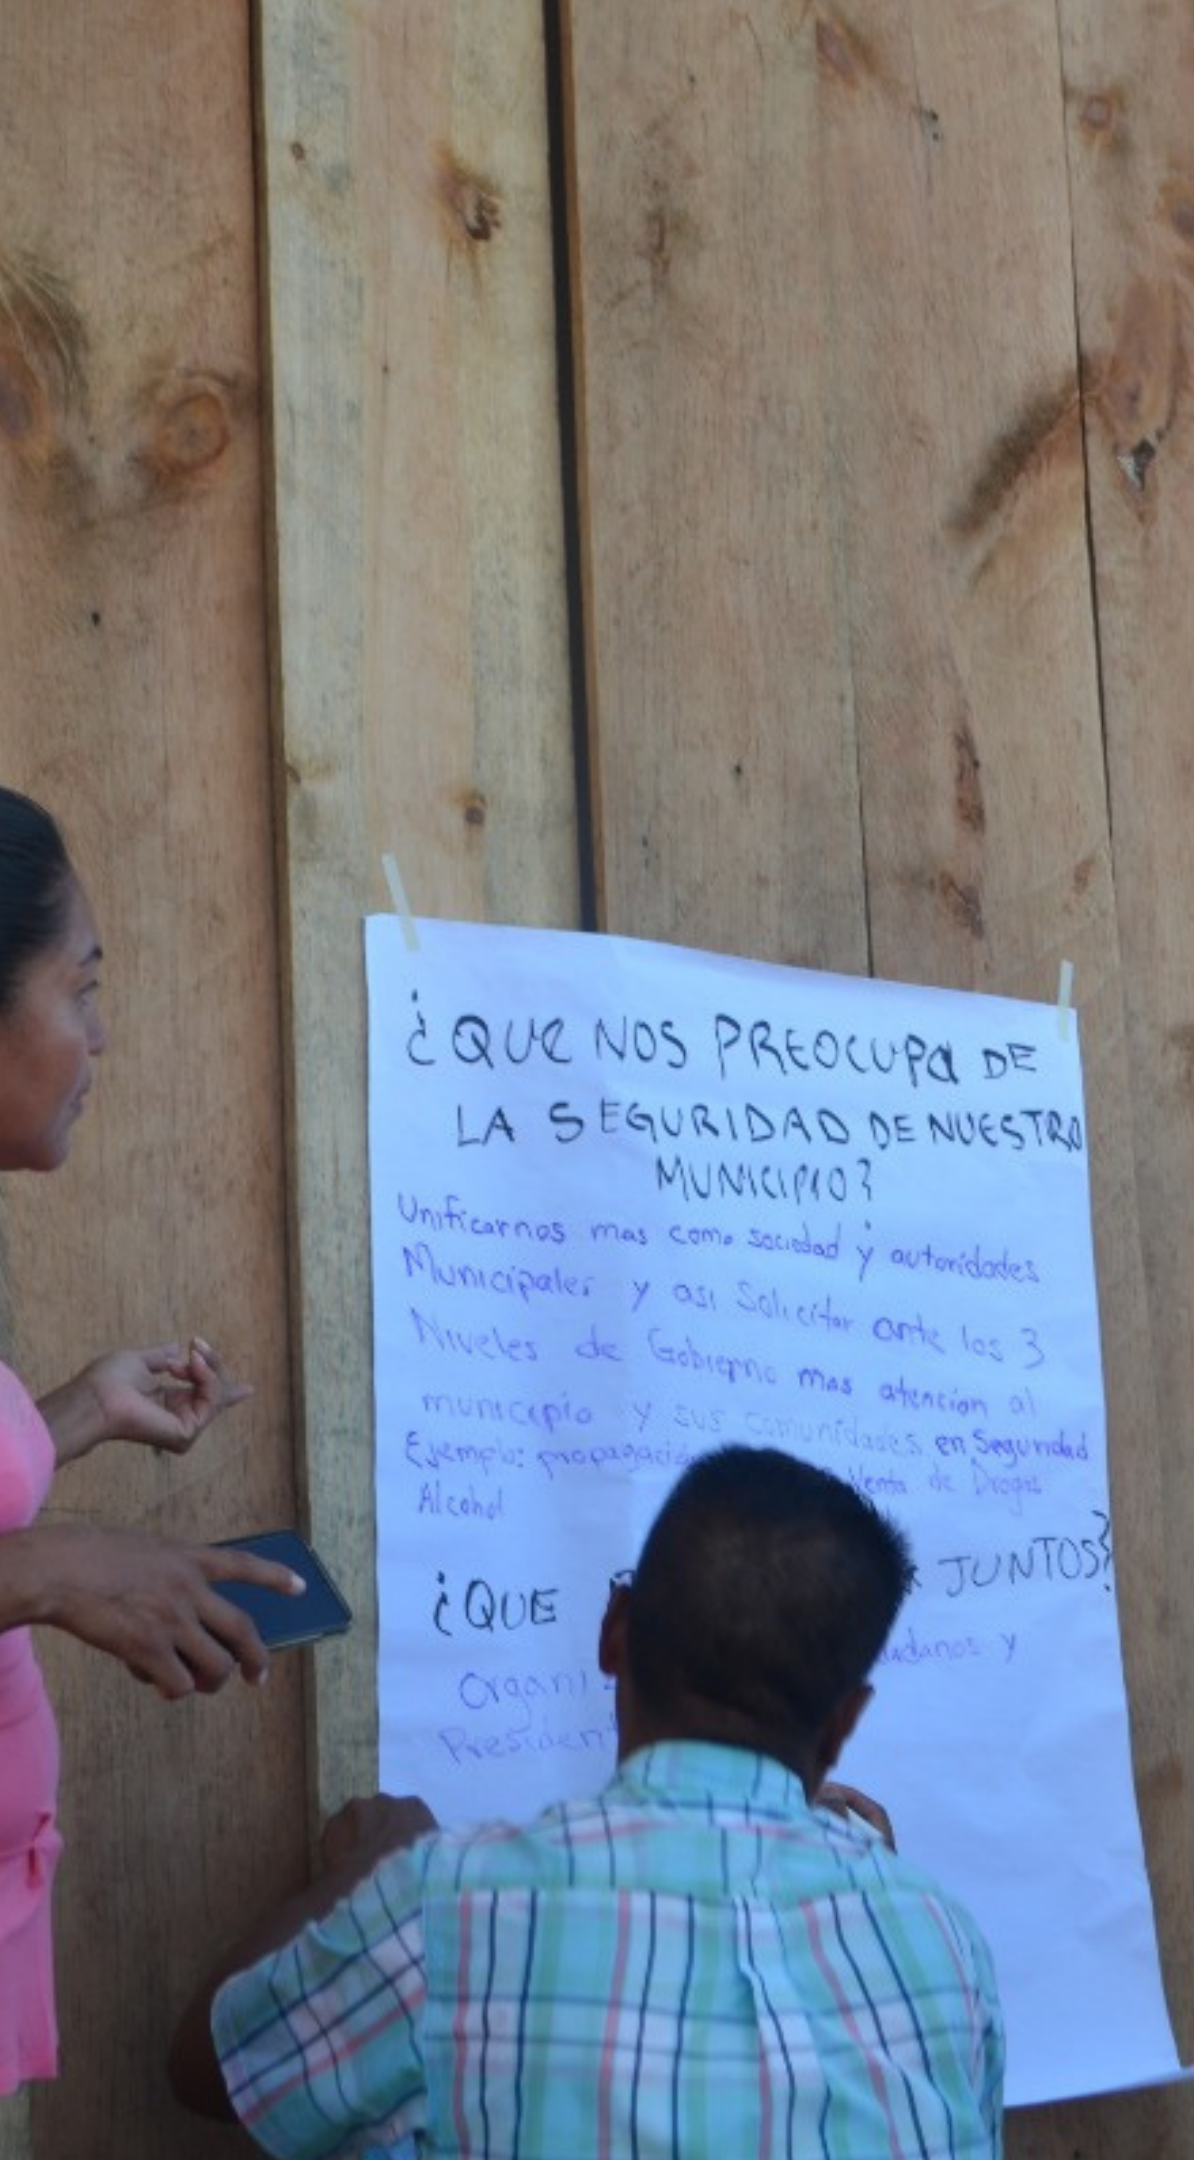 ¿QUE NOS PREOCUPA DE
LA SEGURIDAD DE NUESTRO
MUNICIPIO?
Unificarnos mas como sociedad y autoridades
Municipales y asi Solicitar ante los 3
Niveles de Gobierno mas atencion al
municipio y sus comunidades en Seguridad
Ejemplo: propagación Venta de Drogas
Alcohol
¿QUE JUNTOS?
y